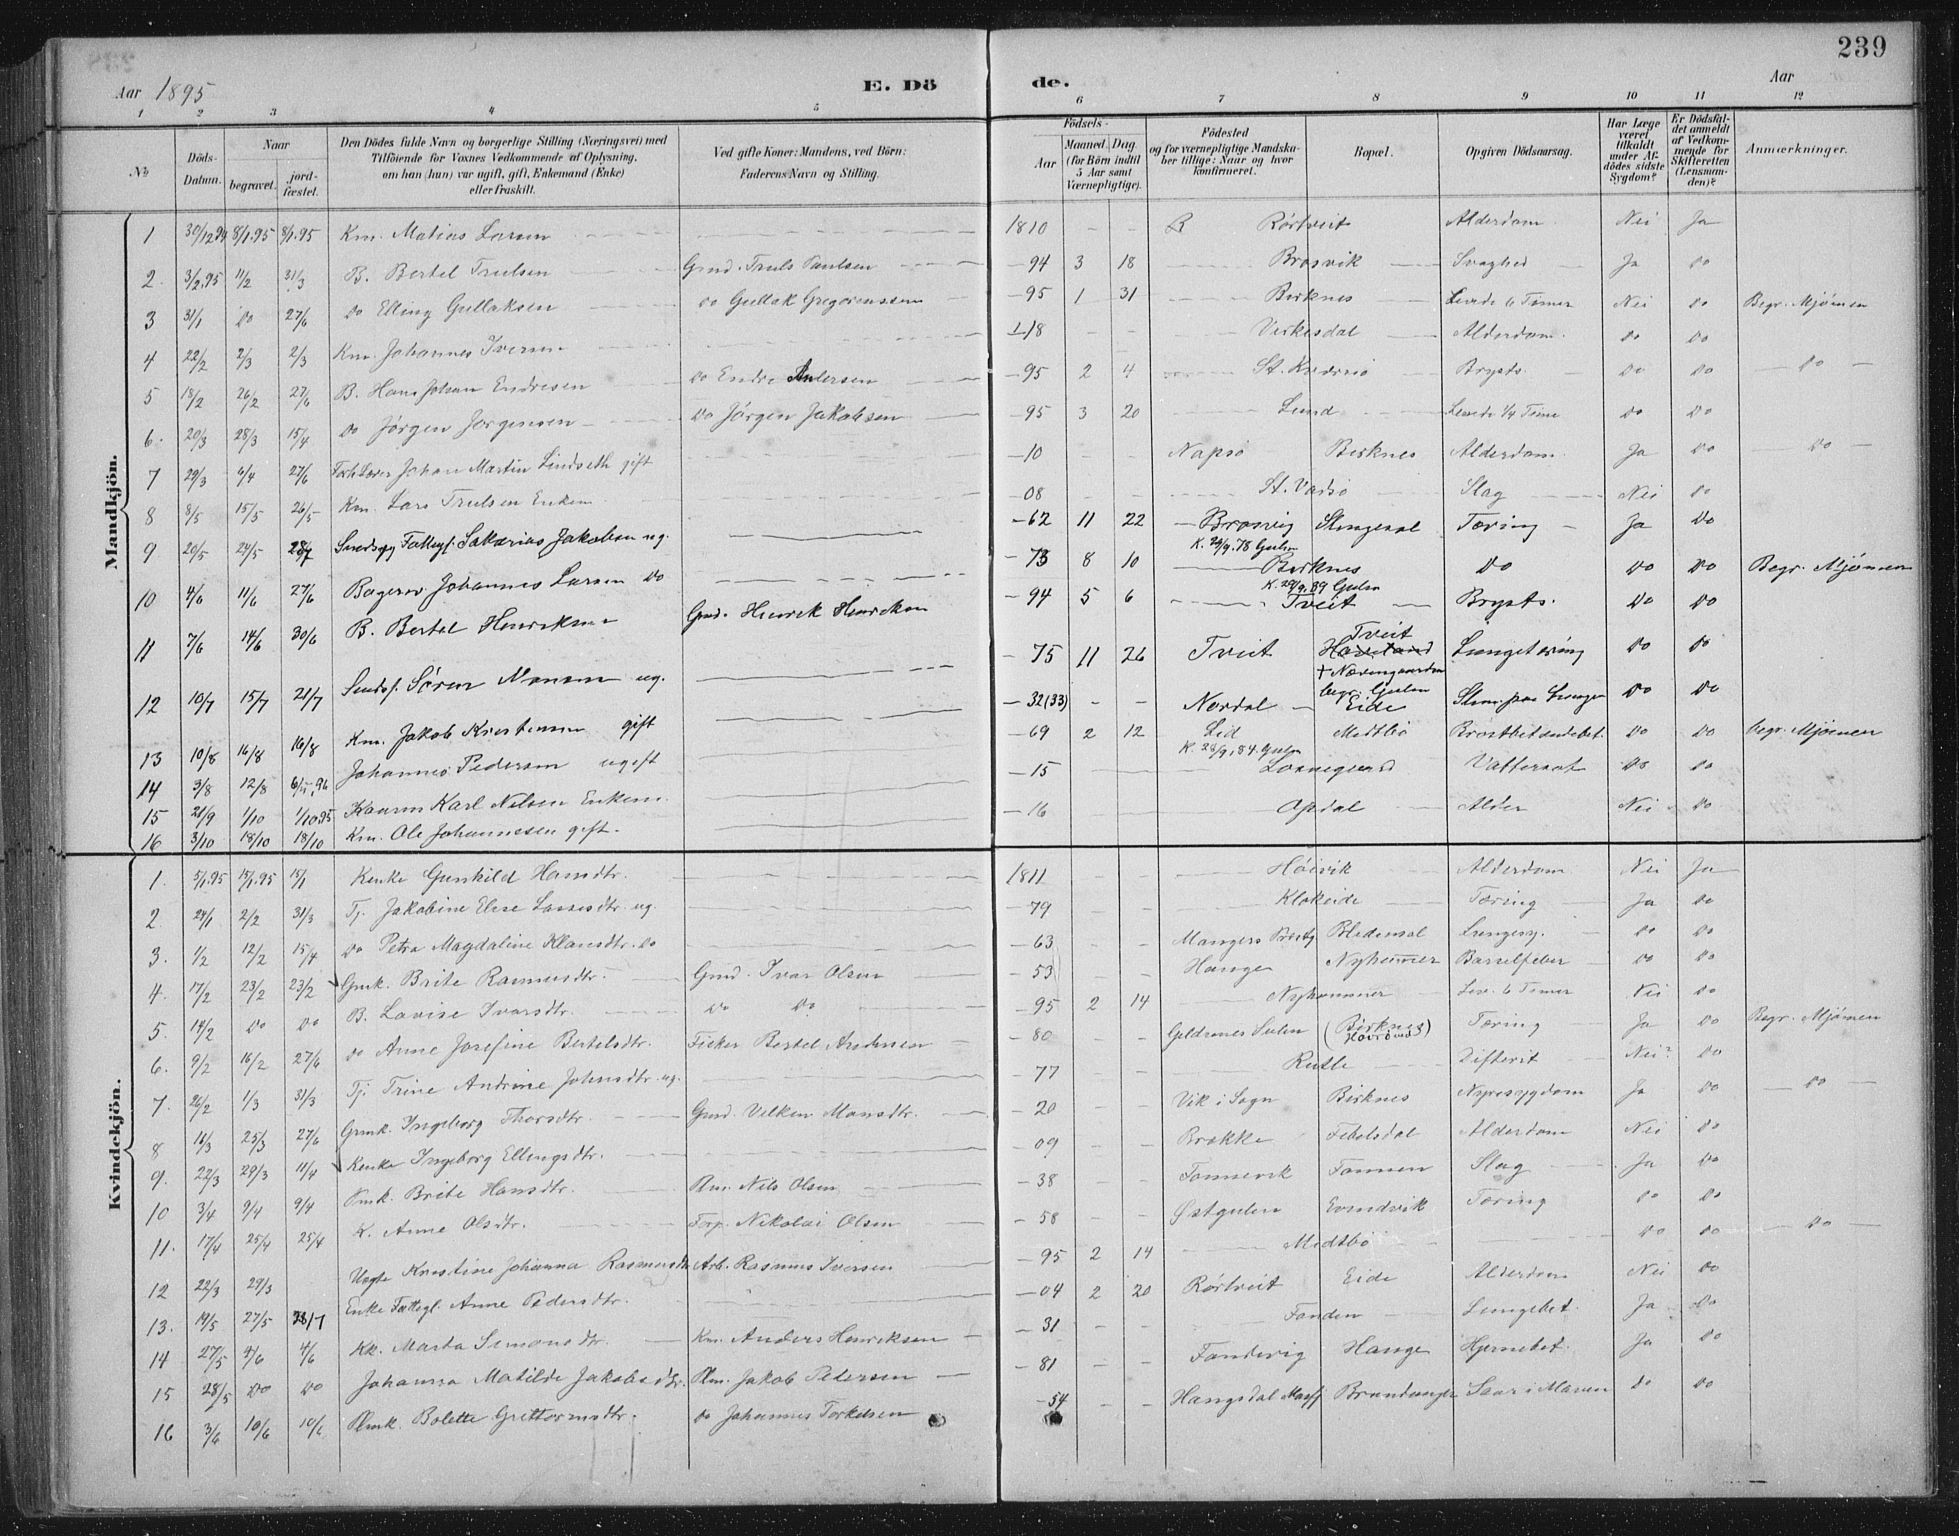 239
Aar 1895
E. Dö
de.
Aar
1 2 3 4 5 6 7 8 9 10 11 12
No
Döds-Datum.
Naar
begravet.
jord-fæstet.
Den Dödes fulde Navn og borgerlige Stilling (Næringsvei) med
Tilföiende for Voxnes Vedkommende af Oplysning,
om han (hun) var ugift, gift, Enkemand (Enke)
eller fraskilt.
Ved gifte Koner: Mandens, ved Börn:
Faderens Navn og Stilling.
Födsels-
Aar
Maaned. Dag.
(for Börn indtil
5 Aar samt
Værnepligtige).
Födested
og for værnepligtige Mandska-
ber tillige: Naar og hvor
konfirmeret.
Bopæl.
Opgiven Dödsaarsag.
Har Læge
været
tilkaldt
under Af-
dödes sidste
Sygdom?
Er Dödsfal-
det anmeldt
af Vedkom-
mende for
Skifteretten
(Lensman-
den)?
Anmærkninger.
Mandkjön.
1 30/12 94 8/1.95 8/1.95 Km. Matias Larsen 1810 Rörtveit Alderdom Nei Ja
2. 3/2.95 11/2 31/3 B. Bertel Trulsen Grmd. Truls Paulsen -94 3 18 Brosvik Svaghed Ja do
3 31/1 do 27/6 do Elling Gullaksen do Gullak Gregoriussen -95 1 31 Birknes Levede 6 Timer Nei do Begr. Mjömen
4 22/2 2/3 2/3 Km. Johannes Iversen -18 Virkesdal Alderdom. do do
5 18/2 26/2 27/6 B. Hans Johan Endresen do Endre Andersen -95 2 4 St. Kversö Brysts. do do do
6. 20/3 28/3 15/4 do Jörgen Jörgensen do Jörgen Jakobsen -95 3 20 Lund Levede 1/4 Time do do
7 29/3 6/4 27/6 Johan Martin Lindseth gift -10 Napsö Birknes Alderdom. Ja do do
8 8/5 15/5 26/5 Km. Lars Trulsen Enkem -08 St. Vadsö Slag Nei do
9 20/5 24/5 28/7 Fattigl. Sakarias Jakobsen ug. -62 11 22 Brosvig Tæring Ja do
K. 29/9.78 Gulen
10 4/6 11/6 27/6 Johannes Larsen do -73 8 10 Birknes do do do Begr. Mjömen
K. 29/9.89 Gulen
11 7/6 14/6 30/6 B. Bertel Henriksen Grmd. Henrik Henriksen -94 5 6 Tveit Brysts. do do
12 10/7 15/7 21/7 Sören Monsen ug. -75 11 26 Tveit Tveit Lungetæring do do
begr. Gulen
13 10/8 16/8 16/8 Km. Jakob Kristensen gift -32 (33) Nordal Eide do do
14 3/8 12/8 Johannes Pedersen ugift -69 2 12 Lid Midtbö Brystbetændelse. do do begr. Mjömen
K. 28/9.84. Gulen
15 21/9 1/10 1/10 95 Karl Nelson Enkem. -15 Vattersot do do
16 3/10 18/10 18/10 Km. Ole Johannesen gift. -16 Opdal Alder Nei do
Kvindekjön.
1. 5/1.95 15/1.95 15/1 Kenke Gunhild Hansdtr. 1811 Höivik Alderdom Nei Ja
2. 24/1 2/2 31/3 Tj. Jakobine Elise Lassesdtr ug. -79 Klokeide Tæring Ja do
3. 1/2 12/2 15/4 do Petra Magdaline Klausdtr. do -63 Mangers Prstg do do
4. 17/2 23/2 23/2 Gmk. Brite Rasmusdtr. Grmd. Ivar Olsen -53 Hauge Nyhammer Barselfeber do do
5. 14/2 do do B. Lavise Ivarsdtr. do do -95 2 14 Nyhammer Lev. 6 Timer Nei do
6. 9/2 16/2 27/6 do Anne Josefine Bertelsdtr. Fisker Bertel Andersen -80 (Birknes) Tæring Ja do Begr. Mjömen
7. 26/2 1/3 31/3 Tj. Trine Andrine Johnsdtr ug. -77 Rutle Difterit Nei? do
8 16/3 25/3 27/6 Grmk. Ingeborg Thorsdtr. Grmd. Villken Monsdtr. -20 Vik i Sogn Birknes Nyresygdom Ja do do
9. 22/3 29/3 11/4 Kenke Ingeborg Ellingsdtr. -09 Brekke Alderdom Nei do
10 3/4 9/4 9/4 Brite Hansdtr. Nils Olsen -38 Tonnevik Tonnen Slag Ja do
11. 17/4 25/4 25/4 K. Anne Olsdtr. Nikolai Olsen -58 Östgulen Evindvik Tæring do do
12 22/3 29/3 Kristine Johanna Rasmusdtr Arb. Rasmus Iversen -95 2 14 Midtbö do do do
13. 19/5 27/5 28/7 Enke Fattigl. Anne Pedersdtr. -04 2 20 Rörtveit Eide Alderdom Nei do
14 27/5 4/6 4/6 Kk. Marta Simonsdtr. Km. Anders Henriksen -31 Fonden Lungebet. Ja do
15 28/5 do do Johanna Matilde Jakobsdtr. Jakob Pedersen -81 Hauge Hjernebet. Ja do
16 3/6 10/6 10/6 Bolette Guttormsdtr. do Johannes Torkelsen -54 Brandanger Saar i Maven do do